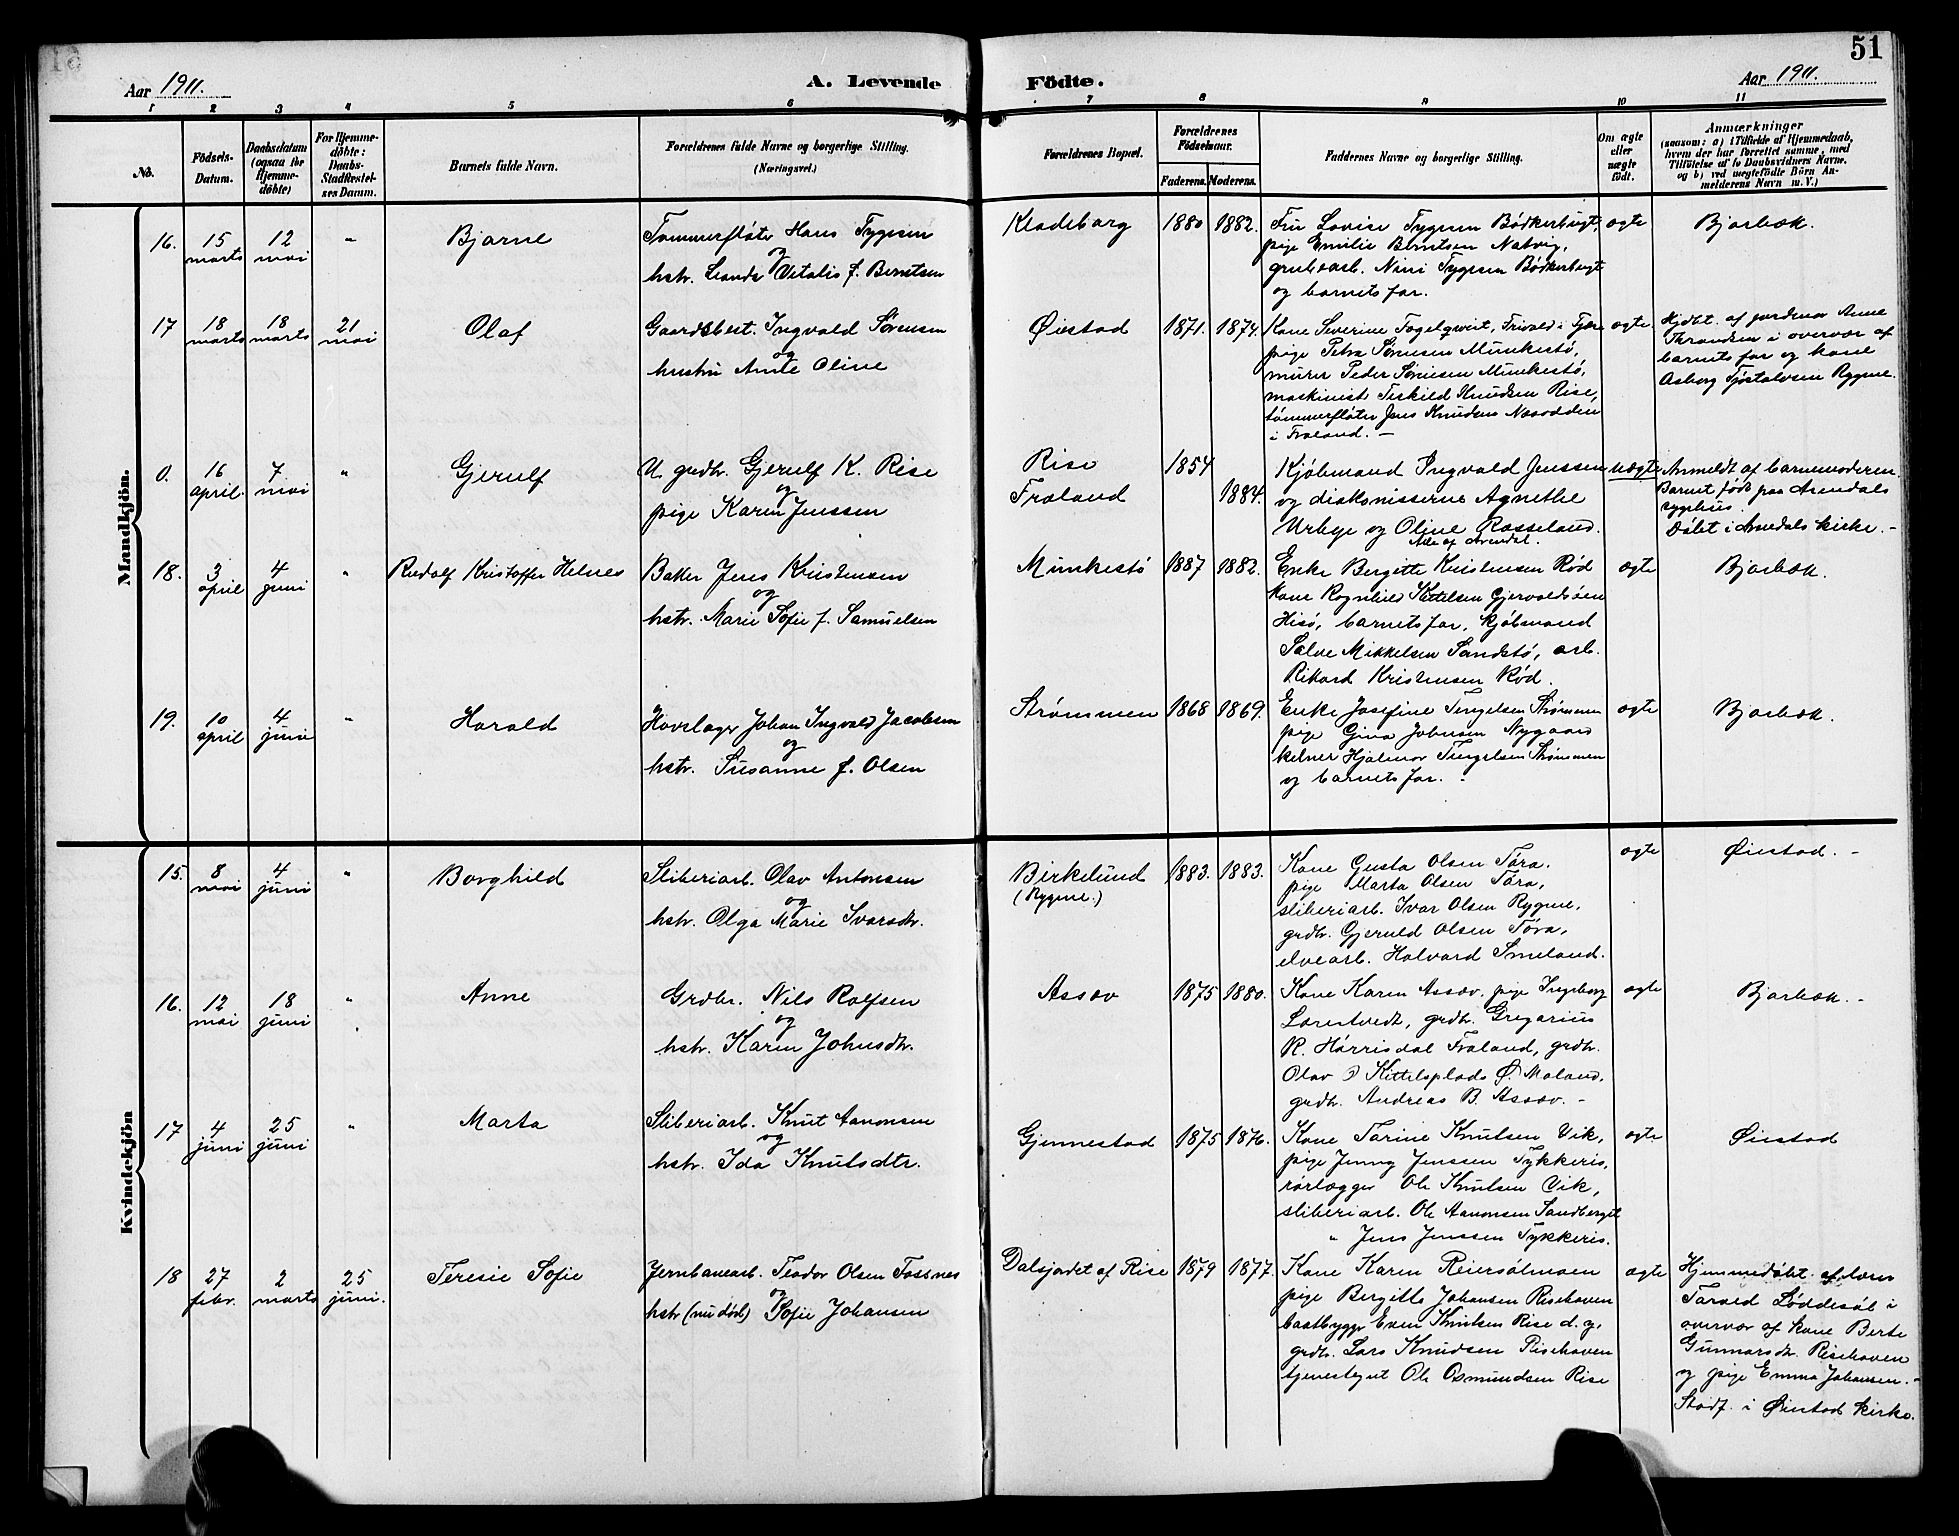 51
Aar 1911.
A. Levende
Födte.
Aar 1911.
1 2 3 4 5 6 7 8 9 10 11
No.
Födsels-
Datum.
Daabsdatum
(ogsaa for
Hjemme-
döbte)
For Hjemme-
döbte:
Daabs-
Stadfæstel-
ses Datum.
Barnets fulde Navn.
Forældrenes fulde Navne og borgerlige Stilling.
(Næringsvei.)
Forældrenes Bopæl.
Forældrenes
Födselsaar.
Faderens. Moderens.
Faddernes Navne og borgerlige Stilling.
Om ægte
eller
uægte
födt.
Anmærkninger
(saasom: a) i Tilfælde af Hjemmedaab,
hvem der har forrettet samme, med
Tilföielse af to Daabsvidners Navne.
og b) ved uægtefödte Börn An-
melderens Navn m. V.)
Mandkjön.
16.
15
marts
12
mai
"
Bjarne
Tømmerfløter Hans Tygesen
og
hstr. Leanda Vitalis f. Berntsen
Kladeborg
1880
1882.
Fru Lovise Tygesen Bødkerbugt,
pige Emilie Berntsen Natvig,
grubearb. Nini Tygesen Bødkerbugt
og barnets far.
ægte
Bjorbæk.
17
18
marts
18
marts
21
mai
Olaf
Gaardsbest. Ingvald Sørensen
og
hustru Amte Oline
Øiestad
1871.
1874.
Kone Severine Fogelqvist,
pige Petra Sørensen Munkestø,
murer Peder Sørensen Munkestø,
maskinist Terkild Knudsen Rise,
tømmerfløter Jens Knudsen Naesodden
i Froland. —
ægte.
Hjdbt. af jordmor Anne
Thrandsen i overvær af
barnets far og kone
Asborg Tjøstalvsen Rygene.
0.
16
april.
7
mai
"
Gjerulf
U. grdbr. Gjerulf K. Rise
og
pige Karen Jenssen
Rise
Froland
1854
1884.
Kjøbmand Ingvald Jenssen
og diakonisserne Agnethe
Urbye og Oline Rosseland.
Alle af Arendal.
uægte
Anmeldt af barnemoderen.
Barnet født paa Arendals
sygehus.
Døbt i Arendals kirke. —
18.
3
april
4
juni
"
Rudolf Kristoffer Helnes
Baker Jens Kristensen
og
hstr. Marie Sofie f. Samuelsen
Munkestø
1887
1882.
Enke Bergitte Kristensen Rød
kone Ragnhild Kittelsen Gjervoldsøen
Hisø, barnets far, kjøbmand
Salve Mikkelsen Sandstø, arb.
Rikard Kristensen Rød.
ægte
Bjorbæk.
19.
10
april
4
juni
"
Harald
Hovslager Johan Ingvald Jacobsen
og
hstr. Susanne f. Olsen
Strømmen
1868
1869.
Enke Josefine Tengelsen Strømmen
pige Gina Johnsen Nygaard
kelner Hjalmar Tengelsen Strømmen
og barnets far. —
ægte
Bjorbæk.
Kvindekjön
15.
8
mai
4
juni
"
Borghild
Sliberiarb. Olav Antonsen
og
hstr. Olga Marie Ivarsdtr.
Birkelund
(Rygene.)
1883.
1883.
Kone Gusta Olsen Tøra.
pige Marta Olsen Tøra,
sliberiarb. Ivar Olsen Rygene,
grdbr. Gjeruld Olsen Tøra,
elvearb. Halvard Smeland.
ægte
Øiestad. —
16.
12
mai
18
juni
"
Anne
Grdbr. Nils Rolfsen
og
hstr. Karen Johnsdtr.
Assev
1875
1880.
Kone Karen Assev, pige Ingeborg
Lørestvedt, grdbr. Gregarius
R. Hørrisdal Froland, grdbr.
Olav Kittelsplads Ø. Moland,
grdbr. Andreas B. Assev. —
ægte
Bjorbæk. —
17
4
juni
25
juni
"
Marta
Sliberiarb. Knut Aanonsen
og
hstr. Ida Knutsdtr.
Gjennestad
1875
1876.
Kone Tarine Knutsen Vik,
pige Jenny Jenssen Tykkeris,
rørlægger Ole Knutsen Vik,
sliberiarb. Ole Aanonsen Sandberget
" Jens Jenssen Tykkeris.
ægte
Øiestad
18
27
febr.
2
marts
25
juni.
Teresie Sofie
Jernbanearb. Teodor Olsen Fossnes
og
hstr (nu død) Sofie Johansen
Dalsjordet af Rise
1879
1877.
Kone Karen Reiersølmoen
pige Bergitte Johansen Risehaven
baatbygger Even Knutsen Rise d.y.
grdbr. Lars Knudsen Risehaven
tjenestegut Ole Osmundsen Rise
ægte
Hjemmedøbt af lærer
Tarald Løddesøl i
overvær af kone Berte
Gunnarsdtr. Risehaven
og pige Emma Johansen. —
Stadf. i Øiestad kirke.